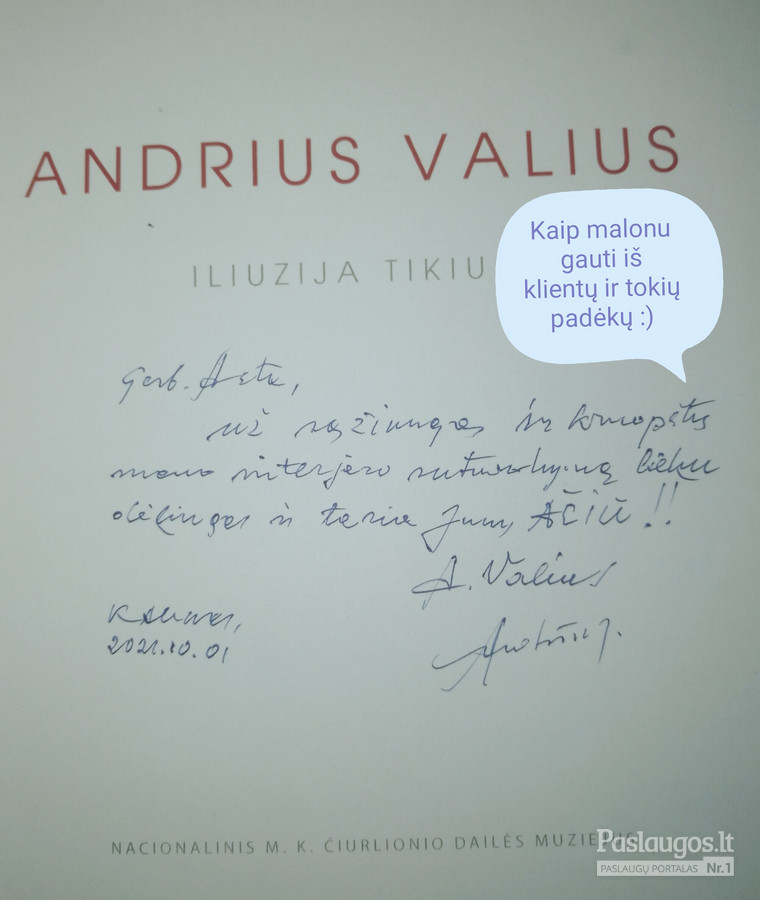 ANDRIUS VALIUS
ILIUZIJA TIKIU
Kaip malonu
gauti iš
klientų ir tokių
padėkų :)
Gerb. Asta,
už sąžiningą ir kruopštų
mano interjero sutvarkymą lieku
dėkingas ir tariu Jums AČIŪ!!
A. Valius
Kaunas,
2021.10.01
NACIONALINIS M. K. ČIURLIONIO DAILĖS MUZIEJUS
Paslaugos.lt
PASLAUGŲ PORTALAS Nr.1